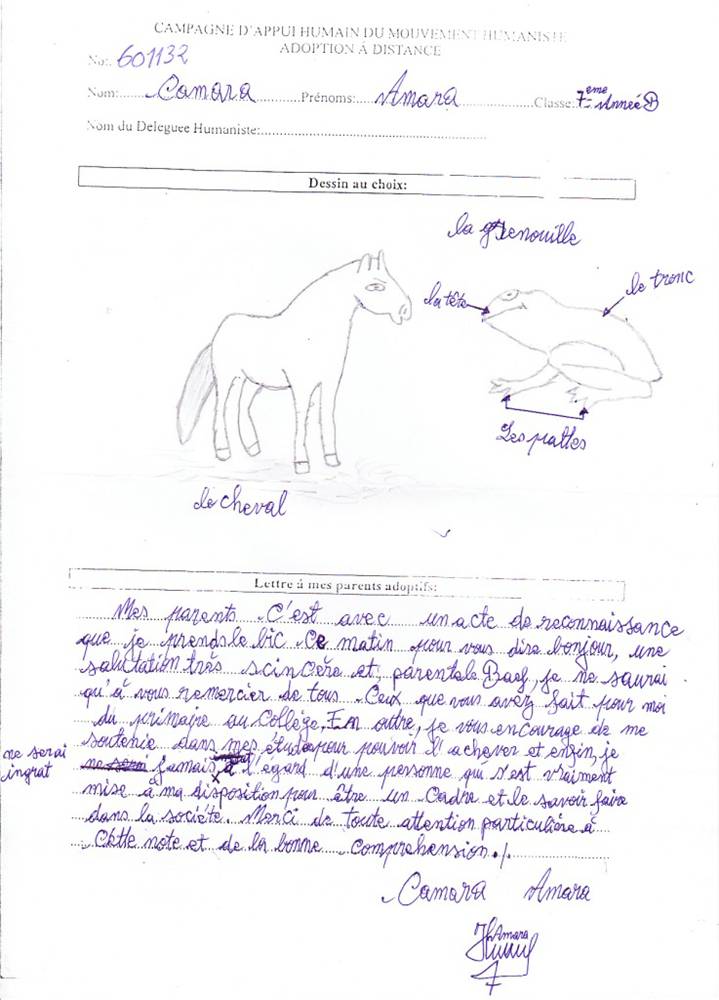 CAMPAGNE D'APPUI HUMAIN DU MOUVEMENT HUMANISTE
ADOPTION À DISTANCE
No: 601132
Nom: Camara Prénoms: Amara Classe: 7ème Année B
Nom du Deleguee Humaniste:
Dessin au choix:
la grenouille
la tête
le tronc
Les pattes
le cheval
Lettre à mes parents adoptifs:
Mes parents. C'est avec un acte de reconnaissance
que je prends le bic. Ce matin pour vous dire bonjour, une
salutation très scincère et parentale. Baef, je ne saurai
qu'à vous remercier de tous. Ceux que vous avez fait pour moi
du primaire au Collège. En outre, je vous encourage de me
soutenie dans mes études pour pouvoir l'achever et enfin, je
ne serai ingrat
jamais à l'égard d'une personne qui s'est vraiment
mise à ma disposition pour être un Cadre et le savoir faire
dans la société. Merci de toute attention particulière à
Cette note et de la bonne comprehension./.
Camara Amara
Amara